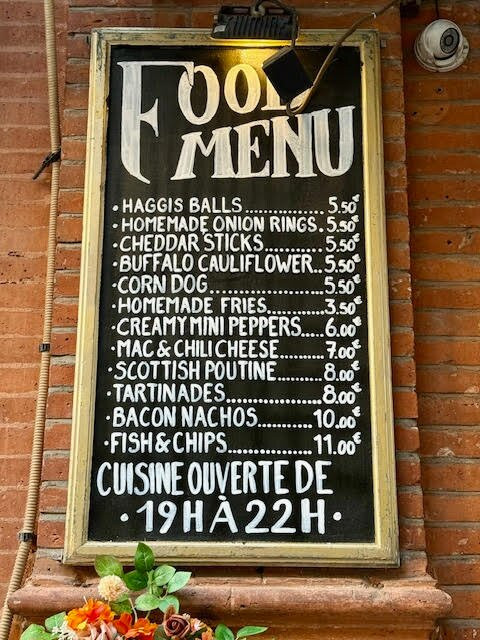 FOOD
MENU
·HAGGIS BALLS..............5.50€
·HOMEMADE ONION RINGS.5.50€
·CHEDDAR STICKS............5.50€
·BUFFALO CAULIFLOWER..5.50€
·CORN DOG.....................5.50€
·HOMEMADE FRIES..........3.50€
·CREAMY MINI PEPPERS....6.00€
·MAC & CHILI CHEESE.......7.00€
·SCOTTISH POUTINE........8.00€
·TARTINADES.................8.00€
·BACON NACHOS...........10.00€
·FISH & CHIPS................11.00€
CUISINE OUVERTE DE
·19H À 22H·